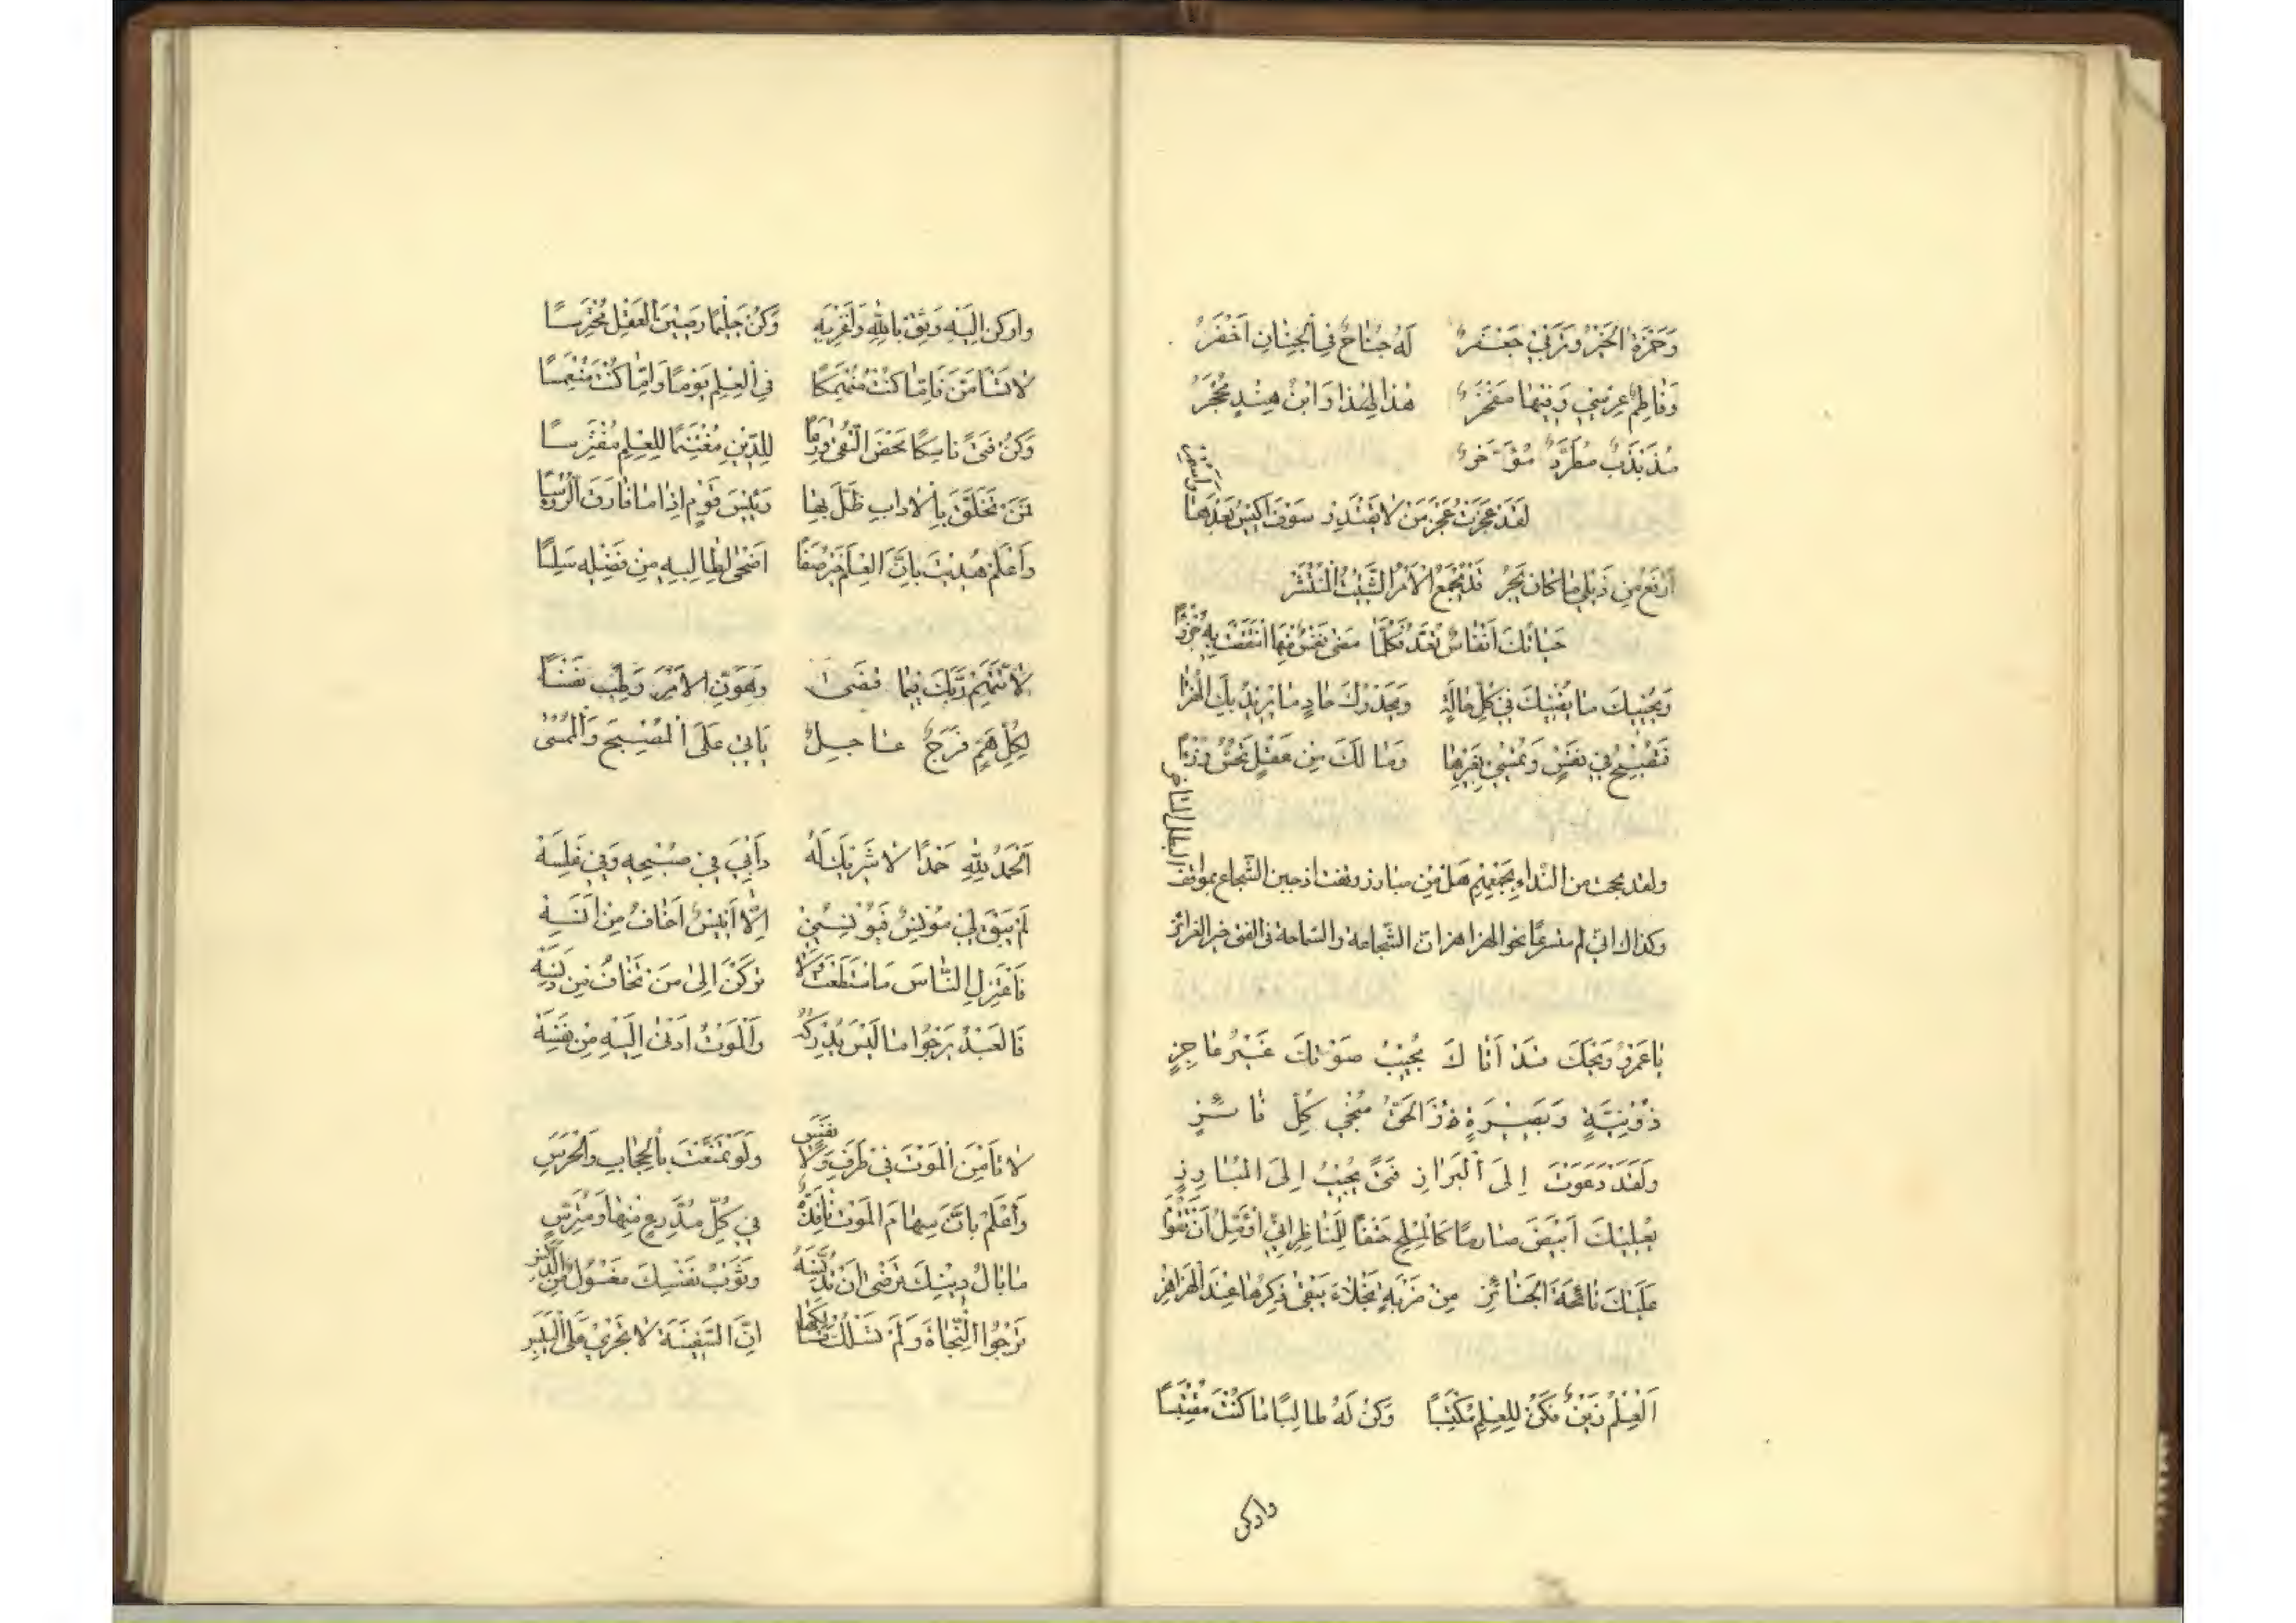 وَحَمْزَةُ الْخَيْرُ وَمِنِّي جَعْفَرُ لَهُ جَنَاحٌ فِي الْجِنَانِ أَخْضَرُ
وَفَاطِمُ عِرْسِي وَفِيهَا مَفْخَرُ هٰذَا لِهٰذَا وَابْنُ هِنْدٍ مُجْحَرُ
مُذَبْذَبٌ مُطَرَّدٌ مُؤَخَّرُ
لَقَدْ عَجَزْتُ عَجْزَ مَنْ لَا يَقْتَدِرْ سَوْفَ أَكِيسُ بَعْدَهَا وَأَسْتَمِرْ
أَرْفَعُ مِنْ ذَيْلِي مَا كَانَ يُجَرْ قَدْ يُجْمَعُ الْأَمْرُ الشَّتِيتُ الْمُنْتَشِرْ
حَيَاتُكَ أَنْفَاسٌ تُعَدُّ فَكُلَّمَا مَضَى نَفَسٌ مِنْهَا انْتَقَصْتَ بِهِ جُزْءًا
وَيُحْيِيكَ مَا يُفْنِيكَ فِي كُلِّ حَالَةٍ وَيَحْدُوكَ حَادٍ مَا يُرِيدُ بِكَ الْهُزْءَا
فَتُصْبِحُ فِي نَفْسٍ وَتُمْسِي بِغَيْرِهَا وَمَا لَكَ مِنْ عَقْلٍ تُحِسُّ بِهِ رُزْءًا
ولقد بححت من النداء بِجَمْعِهِمْ هَلْ مِنْ مبارز ووقفت اذ جبن الشجاع بمواقف البطل المناجز
وكذاك انّى لم متسرعًا نحو الهزاهز ان الشّجاعة والسّماحة فى الفتى خير الغرائز
يَا عَمْرُو وَيْحَكَ قَدْ أَتَاكَ مُجِيبُ صَوْتِكَ غَيْرُ عَاجِزٍ
ذُو نِيَّةٍ وَبَصِيرَةٍ وَالْحَقُّ مُنْجِي كُلِّ فَائِزٍ
وَلَقَدْ دَعَوْتَ إِلَى الْبِرَازِ فَتًى يُجِيبُ إِلَى الْمُبَارِزِ
يُعْلِيكَ أَبْيَضَ صَارِمًا كَالْمِلْحِ حَتْفًا لِلْمُنَاجِزِ إِنِّي أُؤَمِّلُ أَنْ تَقُومَ
عَلَيْكَ نَائِحَةُ الْجَنَائِزِ مِنْ ضَرْبَةٍ نَجْلَاءَ يَبْقَى ذِكْرُهَا عِنْدَ الْهَزَاهِزِ
اَلْعِلْمُ زَيْنٌ فَكُنْ لِلْعِلْمِ مُكْتَسِبًا وَكُنْ لَهُ طَالِبًا مَا كُنْتَ مُقْتَبِسًا
واركن
واركن إِلَيْهِ وَثِقْ بِاللهِ وَاغْنَ بِهِ وَكُنْ حَلِيمًا رَصِينَ الْعَقْلِ مُحْتَرِسًا
لَا تَسْأَمَنَّ فَإِمَّا كُنْتَ مُنْهَمِكًا فِي الْعِلْمِ يَوْمًا وَإِمَّا كُنْتَ مُنْغَمِسًا
وَكُنْ فَتًى نَاسِكًا مَحْضَ التُّقَى وَرِعًا لِلدِّينِ مُغْتَنِمًا لِلْعِلْمِ مُفْتَرِسًا
فَمَنْ تَخَلَّقَ بِالْآدَابِ ظَلَّ بِهَا رَئِيسَ قَوْمٍ إِذَا مَا فَارَقَ الرُّؤَسَا
وَاعْلَمْ هُدِيتَ بِأَنَّ الْعِلْمَ خَيْرُ صَفًا أَضْحَى لِطَالِبِهِ مِنْ فَضْلِهِ سَلِسًا
لَا تَتَّهِمْ رَبَّكَ فِيمَا قَضَى وَهَوِّنِ الْأَمْرَ وَطِبْ نَفْسًا
لِكُلِّ هَمٍّ فَرَجٌ عَاجِلٌ يَأْتِي عَلَى الْمُصْبَحِ وَالْمُمْسَى
اَلْحَمْدُ لِلَّهِ حَمْدًا لَا شَرِيكَ لَهُ دَأْبِيَ فِي صُبْحِهِ وَفِي غَلَسِهْ
لَمْ يَبْقَ لِي مُونِسٌ فَيُؤْنِسُنِي إِلَّا أَنِيسٌ أَخَافُ مِنْ أَنَسِهْ
فَاعْتَزِلِ النَّاسَ مَا اسْتَطَعْتَ وَلَا تَرْكَنْ إِلَى مَنْ تَخَافُ مِنْ دَنَسِهْ
فَالْعَبْدُ يَرْجُوا مَا لَيْسَ يُدْرِكُهُ وَالْمَوْتُ أَدْنَى إِلَيْهِ مِنْ نَفَسِهْ
لَا تَأْمَنِ الْمَوْتَ فِي طَرْفٍ وَلَا نَفَسٍ وَلَوْ تَمَنَّعْتَ بِالْحِجَابِ وَالْحَرَسِ
وَاعْلَمْ بِأَنَّ سِهَامَ الْمَوْتِ نَافِذَةٌ فِي كُلِّ مُدَّرِعٍ مِنْهَا وَمُتَّرِسٍ
مَا بَالُ دِينِكَ تَرْضَى أَنْ تُدَنِّسَهُ وَثَوْبُ نَفْسِكَ مَغْسُولٌ مِنَ الدَّنَسِ
تَرْجُوا النَّجَاةَ وَلَمْ تَسْلُكْ مَسَالِكَهَا إِنَّ السَّفِينَةَ لَا تَجْرِي عَلَى الْيَبَسِ